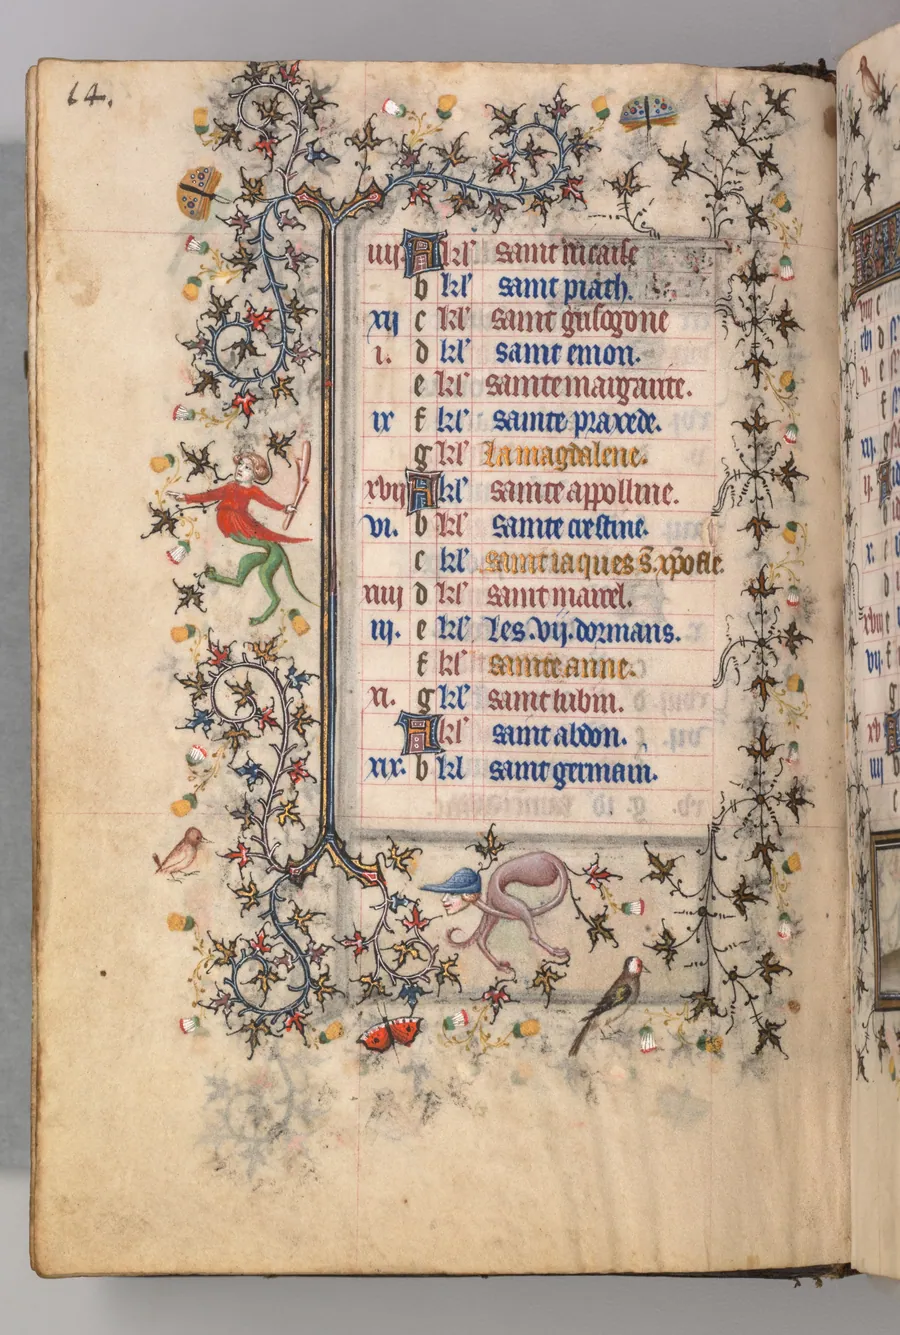 64.
iiij A kl' saint nicaise
b kl' saint piath.
xij c kl' saint grisogone
i. d kl' saint emon.
e kl' sainte margarite.
ix f kl' sainte praxede.
g kl' La magdalene.
xvij A kl' sainte appolline.
vi. b kl' sainte crestine.
c kl' saint iaques s. xpofle.
xiiij d kl' saint marcel.
iij. e kl' Les .vij. dormans.
f kl' sainte anne.
xi. g kl' saint lubin.
A kl' saint abdon.
xix. b kl saint germain.